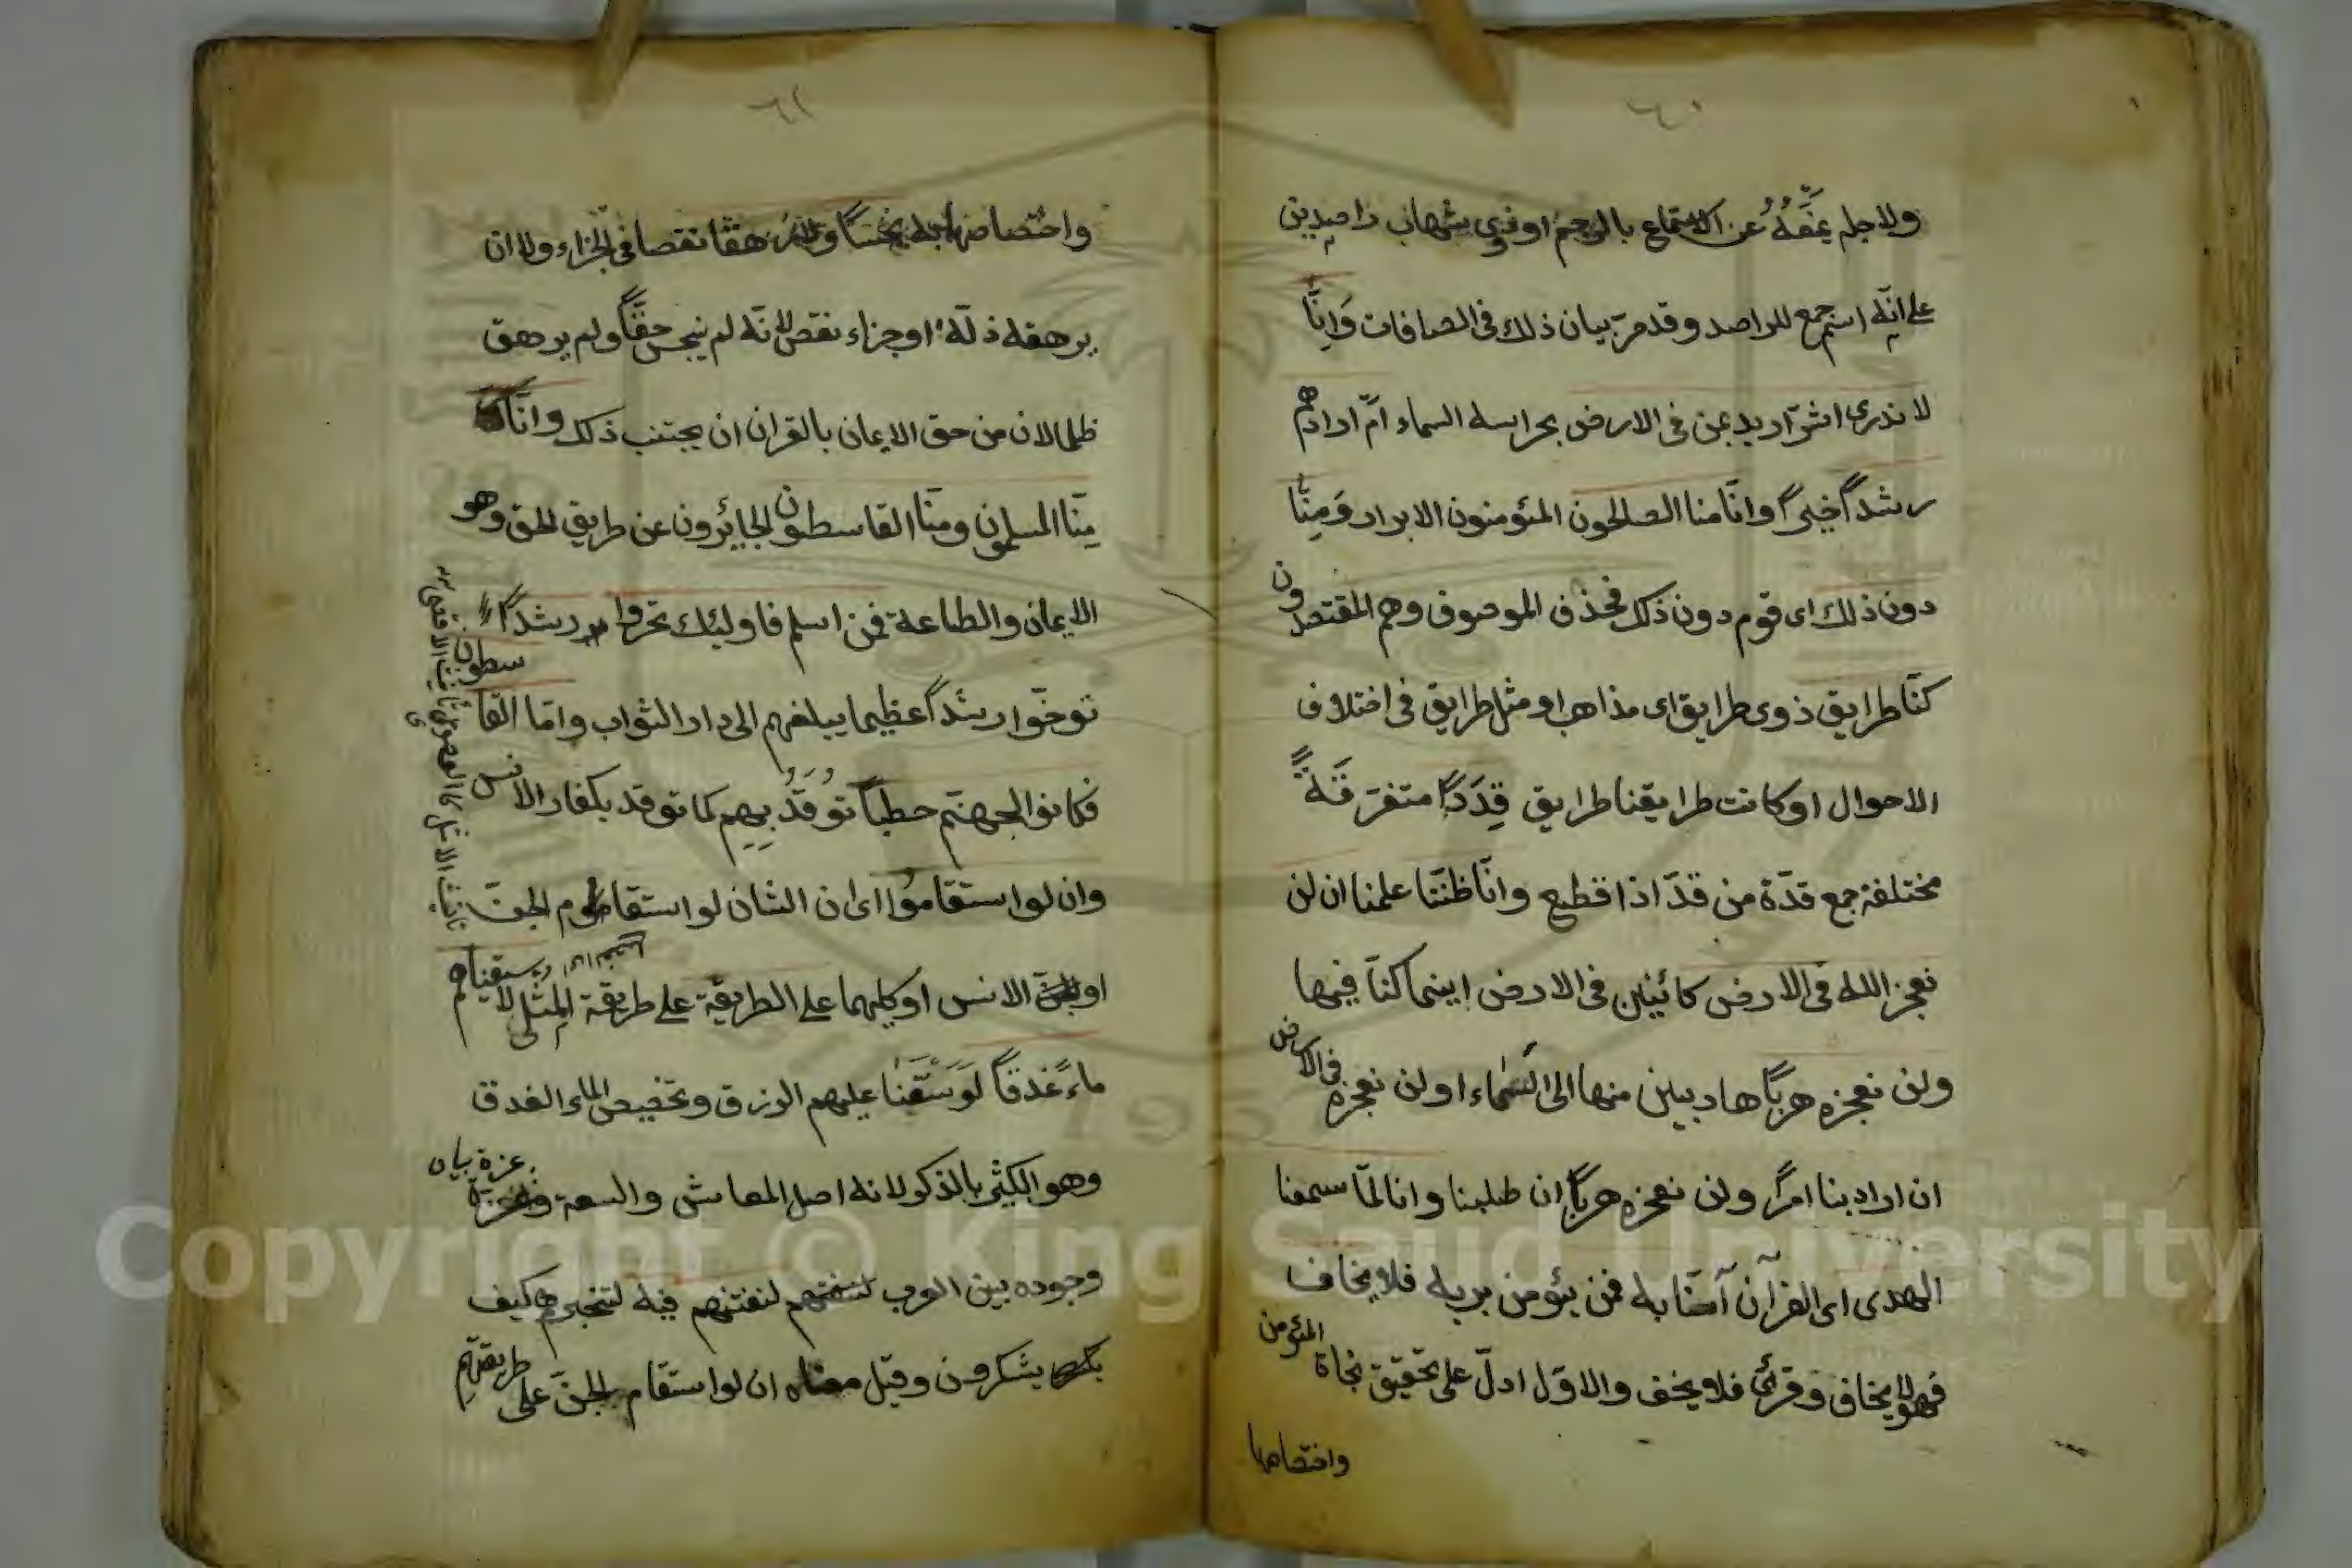 ٦٠
ولاجله يمنعه عن الاستماع بالرجم او ذوى شهاب راصدين
على انه اسم جمع للراصد وقد مرّ بيان ذلك فى الصافات وَاِنَّا
لا ندرى اشرّ اريد بمن فى الارض بحراسة السماء امّ اراد بهم
رشداً خيراً وانّا منا الصلحون المئومنون الابرار وَمِنّا
دون ذلك اى قوم دون ذلك فحذف الموصوف وهم المقتصدون
كنّا طرايق ذوى طرايق اى مذاهب او مثل طرايق فى اختلاف
الاحوال او كانت طرايقنا طرايق قِدَدًا متفرّقَةً
مختلفة جمع قدّة من قدّ اذا قطع وانّا ظنّنا علمنا ان لن
نعجز الله فى الارض كائنين فى الارض اينما كنّا فيها
ولن نعجزه هربًا هاربين منها الى السماء او لن نعجزه فى الارض
ان اراد بنا امرًا ولن نعجزه هربًا ان طلبنا وانا لمّا سمعنا
الهدى اى القرآن آمنّا به فمن يئومن بربه فلا يخاف
فهو لا يخاف وقرئ فلا يخف والاوّل ادلّ على تحقيق نجاة المئومن
واختصاصها
٦١
واختصاصها به بخسًا ولا رهقًا نقصا فى الجزاء ولا ان
يرهقه ذلّة او جزاء نقص لانّه لم يبخس حقّاً ولم يرهق
ظلما لان من حق الايمان بالقران ان يجتنب ذلك وانّا
مِنّا المسلمون ومنّا القاسطون الجائرون عن طريق الحق وهو
الايمان والطاعة فمن اسلم فاولئك تحرّوا رشداً
توخّوا رشداً عظيما يبلغهم الى دار الثواب وامّا القاسطون
فكانوا لجهنّم حطباً تُوقَدُ بِهِم كما توقد بكفار الانس
وان لو استقامُوا اى ان الشان لو استقام الجنّ
او الانس او كليهما على الطريقة على طريقة المثلى لاسقيناهم
ماءً غدقاً لوَسَّعْنا عليهم الرزق وتخصيص الماء الغدق
وهو الكثير بالذكر لانه اصل المعاش والسعة وعزة
وجوده بين العرب لنفتنهم فيه لنختبرهم كيف
يشكرون وقيل معناه ان لو استقام الجنّ على طريقتهم